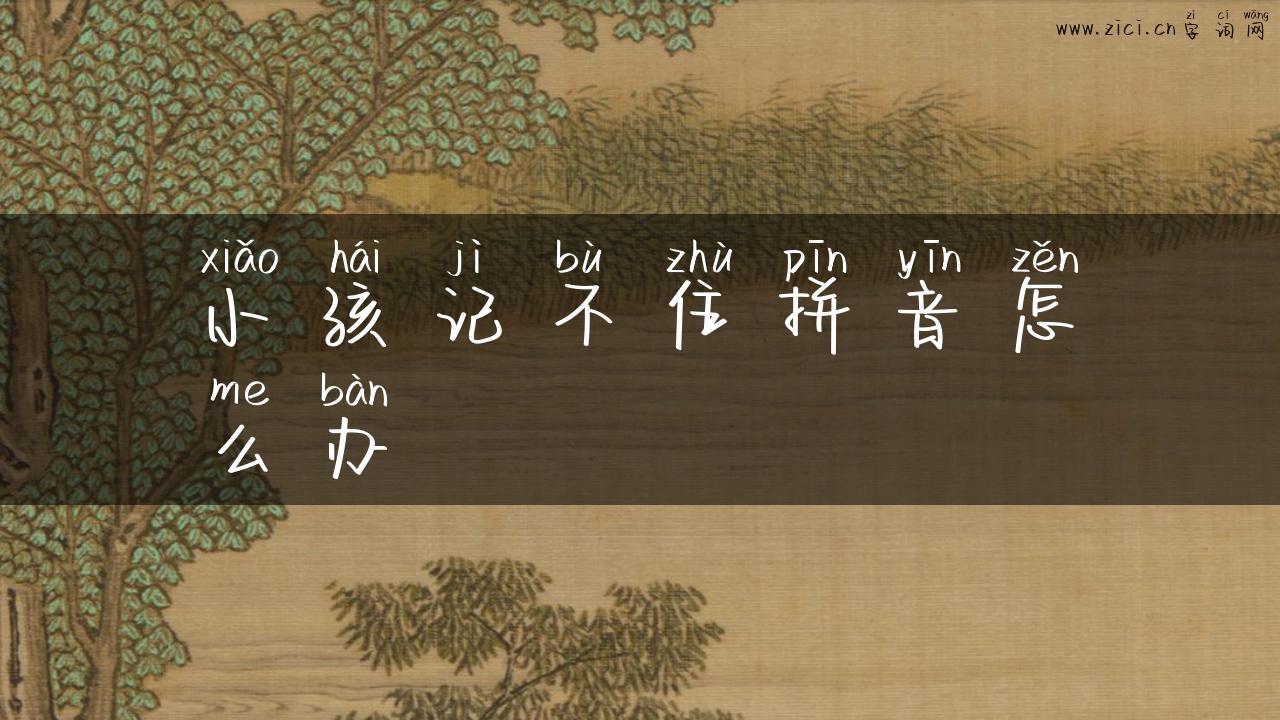 zì cí wǎng
www.zici.cn 字词网
xiǎo hái jì bù zhù pīn yīn zěn
小孩记不住拼音怎
me bàn
么办